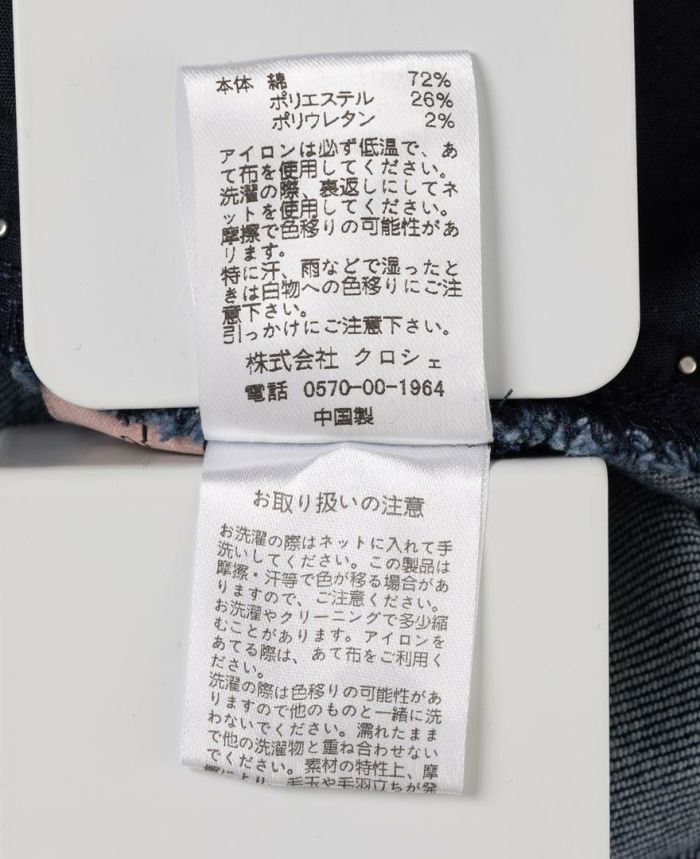 本体 綿 72%
ポリエステル 26%
ポリウレタン 2%
アイロンは必ず低温で、あ
て布を使用してください。
洗濯の際、裏返しにしてネ
ットを使用してください。
摩擦で色移りの可能性があ
ります。
特に汗、雨などで湿ったと
きは白物への色移りにご注
意下さい。
引っかけにご注意下さい。
株式会社 クロシェ
電話 0570-00-1964
中国製
お取り扱いの注意
お洗濯の際はネットに入れて手
洗いしてください。この製品は
摩擦・汗等で色が移る場合があ
りますので、ご注意ください。
お洗濯やクリーニングで多少縮
むことがあります。アイロンを
あてる際は、あて布をご利用く
ださい。
洗濯の際は色移りの可能性があ
りますので他のものと一緒に洗
わないでください。濡れたまま
で他の洗濯物と重ね合わせない
でください。素材の特性上、摩
擦により、毛玉や毛羽立ちが発